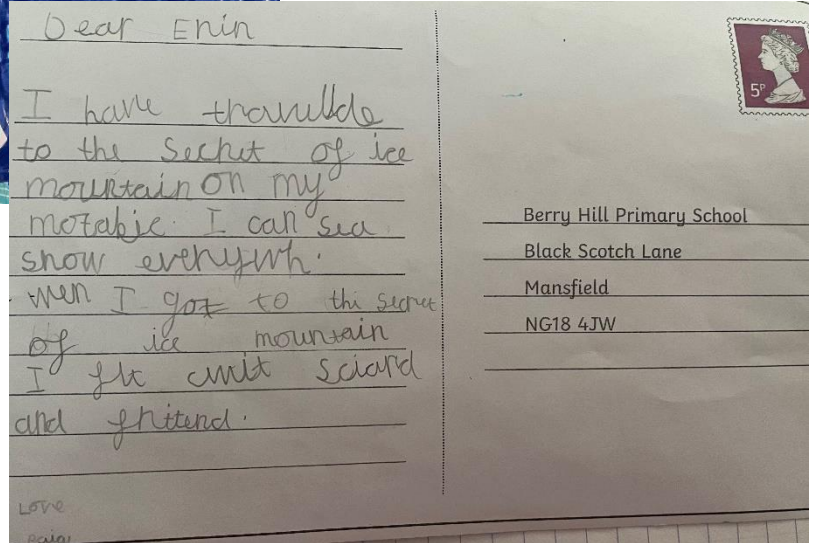 Dear Erin
I have thravellde
to the Secret of ice
mountain on my
motabic. I can sea
snow everywh.
when I got to the secret
of ice mountain
I flt cwit sciard
and frittend.
Love
5P
Berry Hill Primary School
Black Scotch Lane
Mansfield
NG18 4JW